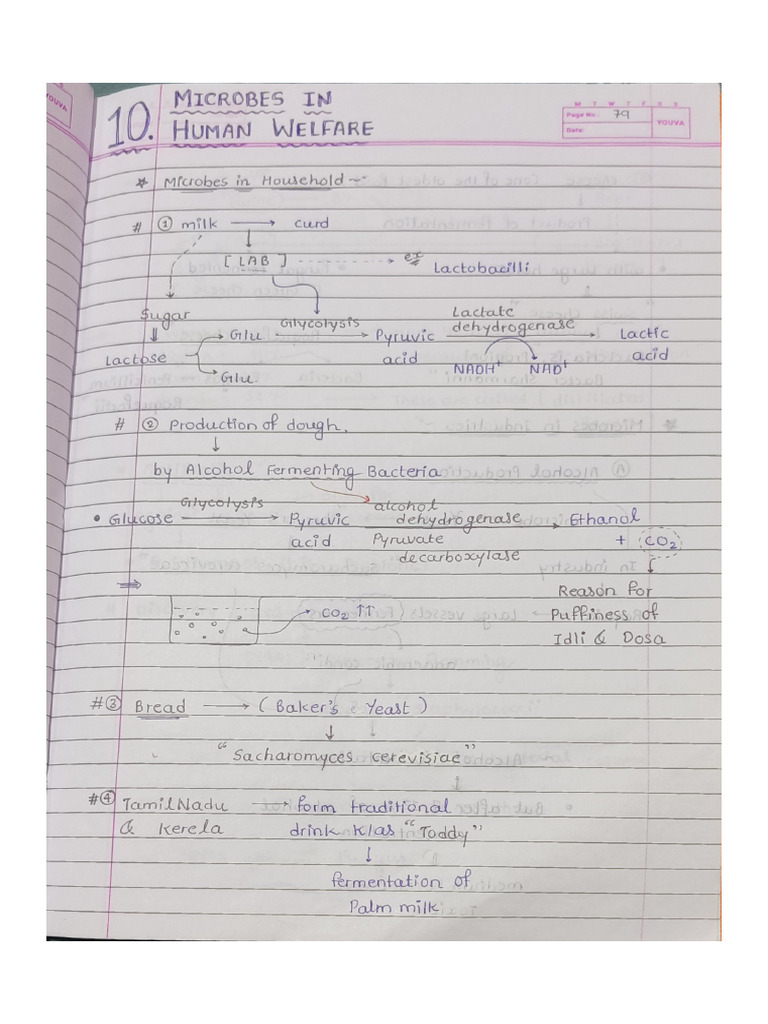 YOUVA
10. MICROBES IN
HUMAN WELFARE
M T W T F S S
Page No.: 79
Date:
YOUVA
* Microbes in Household :-
# ① milk → curd
[LAB] ⇢ ex Lactobacilli
Sugar
Lactose
Glu Glycolysis → Pyruvic acid
Lactate dehydrogenase → Lactic acid
NADH⁺ NAD⁺
Glu.
# ② Production of dough.
↓
by Alcohol Fermenting Bacteria
• Glucose Glycolysis → Pyruvic acid
alcohol dehydrogenase → Ethanol
Pyruvate decarboxylase
+ CO₂
⇒
CO₂ ↑↑
Reason for
Puffiness of
Idli & Dosa
#③ Bread → (Baker's Yeast)
↓
"Sacharomyces cerevisiae"
#④ TamilNadu → form traditional
& Kerela drink klas "Toddy"
↓
fermentation of
Palm milk